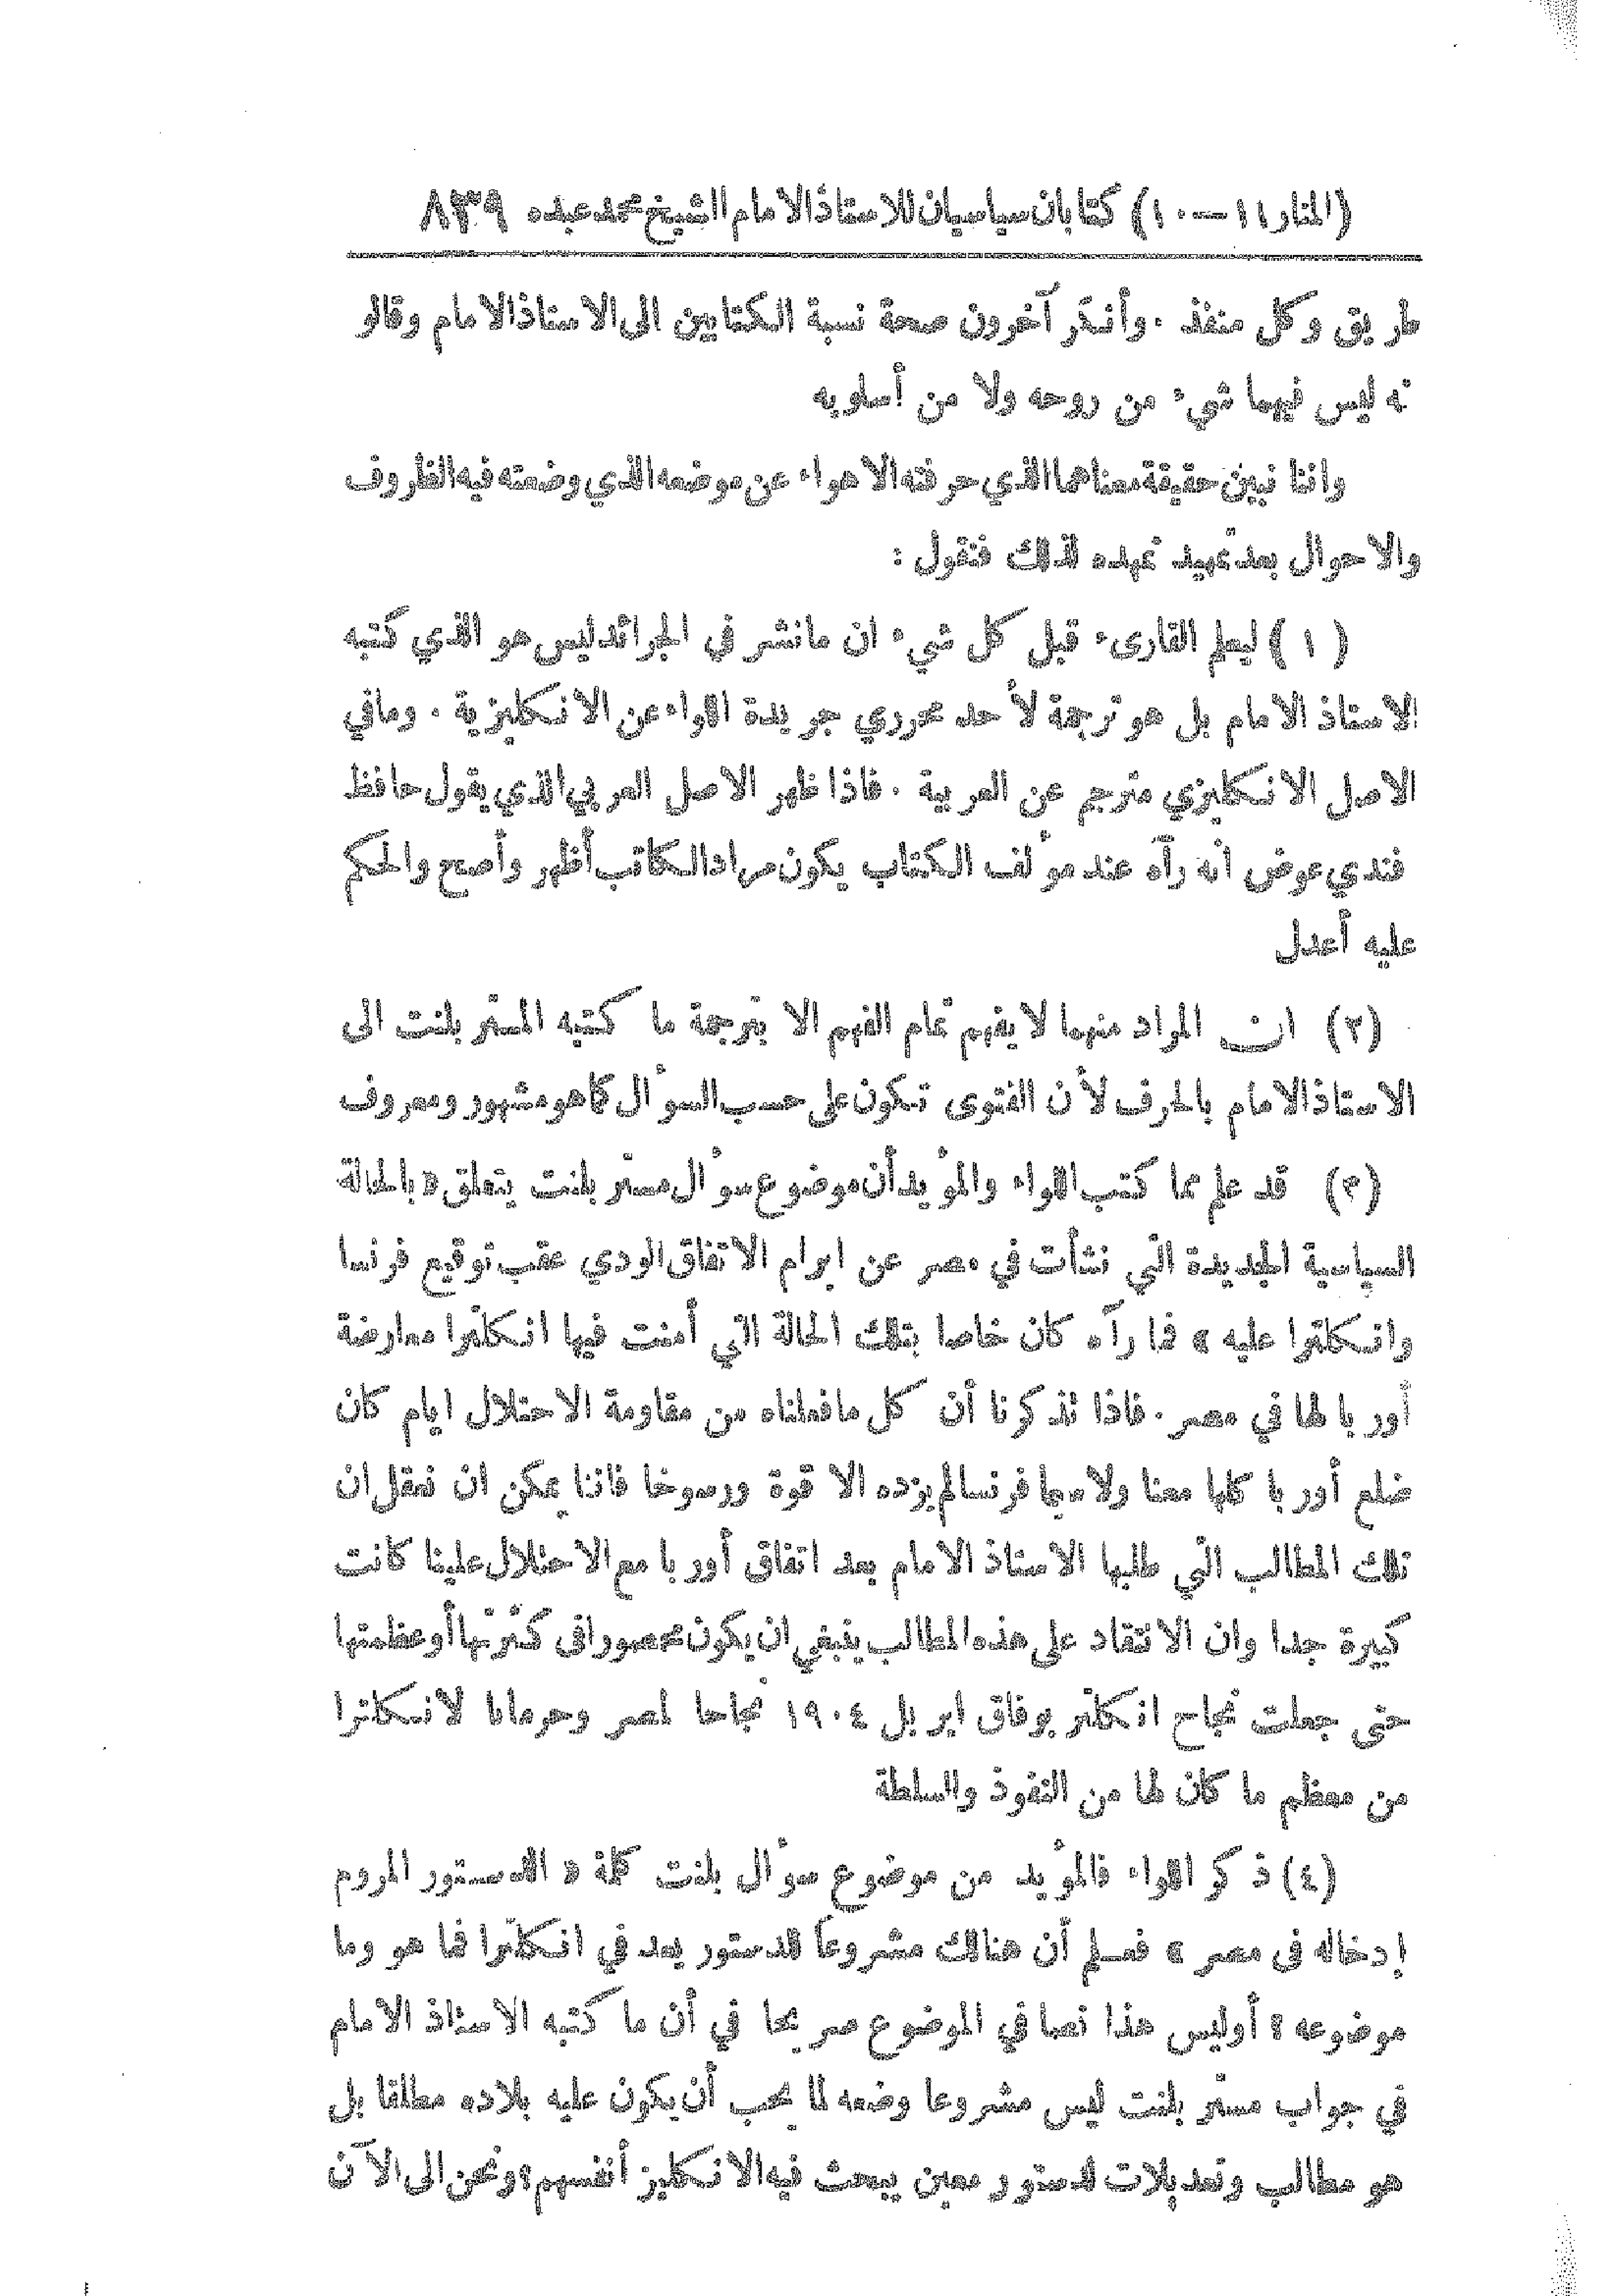 (المنار ١١ — ١٠) كتابان سياسيان للاستاذ الامام الشيخ محمد عبده ٨٣٩
طريق وكل منفذ . وأنكر آخرون صحة نسبة الكتابين الى الاستاذ الامام وقالو
نه ليس فيهما شيء من روحه ولا من أسلوبه
واننا نبين حقيقة معناهما الذي حرفته الاهواء عن موضعه الذي وضعته فيه الظروف
والاحوال بعد تمهيد نمهده لذلك فنقول :
( ١ ) ليعلم القارىء قبل كل شيء ان مانشر في الجرائد ليس هو الذي كتبه
الاستاذ الامام بل هو ترجمة لأحد محرري جريدة اللواء عن الانكليزية . وما في
الاصل الانكليزي مترجم عن العربية . فاذا ظهر الاصل العربي الذي يقول حافظ
فندي عوض انه رآه عند مؤلف الكتاب يكون مراد الكاتب أظهر وأصح والحكم
عليه أعدل
(٢) ان المراد منهما لا يفهم تمام الفهم الا بترجمة ما كتبه المستر بلنت الى
الاستاذ الامام بالحرف لأن الفتوى تكون على حسب السؤال كما هو مشهور ومعروف
(٣) قد علم مما كتب اللواء والمؤيد أن موضوع سؤال مستر بلنت يتعلق « بالحالة
السياسية الجديدة التي نشأت في مصر عن ابرام الاتفاق الودي عقب توقيع فرنسا
وانكلترا عليه » فما رآه كان خاصا بتلك الحالة التي أمنت فيها انكلترا معارضة
أوربا لها في مصر . فاذا تذكرنا أن كل مافعلناه من مقاومة الاحتلال ايام كان
ضلع أوربا كلها معنا ولا سيما فرنسا لم يزده الا قوة ورسوخا فاننا يمكن ان نعقل ان
تلك المطالب التي طلبها الاستاذ الامام بعد اتفاق أوربا مع الاحتلال علينا كانت
كبيرة جدا وان الانتقاد على هذه المطالب ينبغي ان يكون محصورا فى كثرتها أو عظمتها
حتى جعلت نجاح انكلتر بوفاق ابريل ١٩٠٤ نجاحا لمصر وحرمانا لانكلترا
من معظم ما كان لها من النفوذ والسلطة
(٤) ذكر اللواء فالمؤيد من موضوع سؤال بلنت كلمة « الدستور المروم
إدخاله فى مصر » فعلم أن هنالك مشروعاً للدستور يعد في انكلترا فما هو وما
موضوعه ؟ أوليس هذا نصا في الموضوع صريحا في أن ما كتبه الاستاذ الامام
في جواب مستر بلنت ليس مشروعا وضعه لما يجب أن يكون عليه بلاده مطلقا بل
هو مطالب وتعديلات لدستور معين يبحث فيه الانكليز أنفسهم ؟ ونحن الى الآن